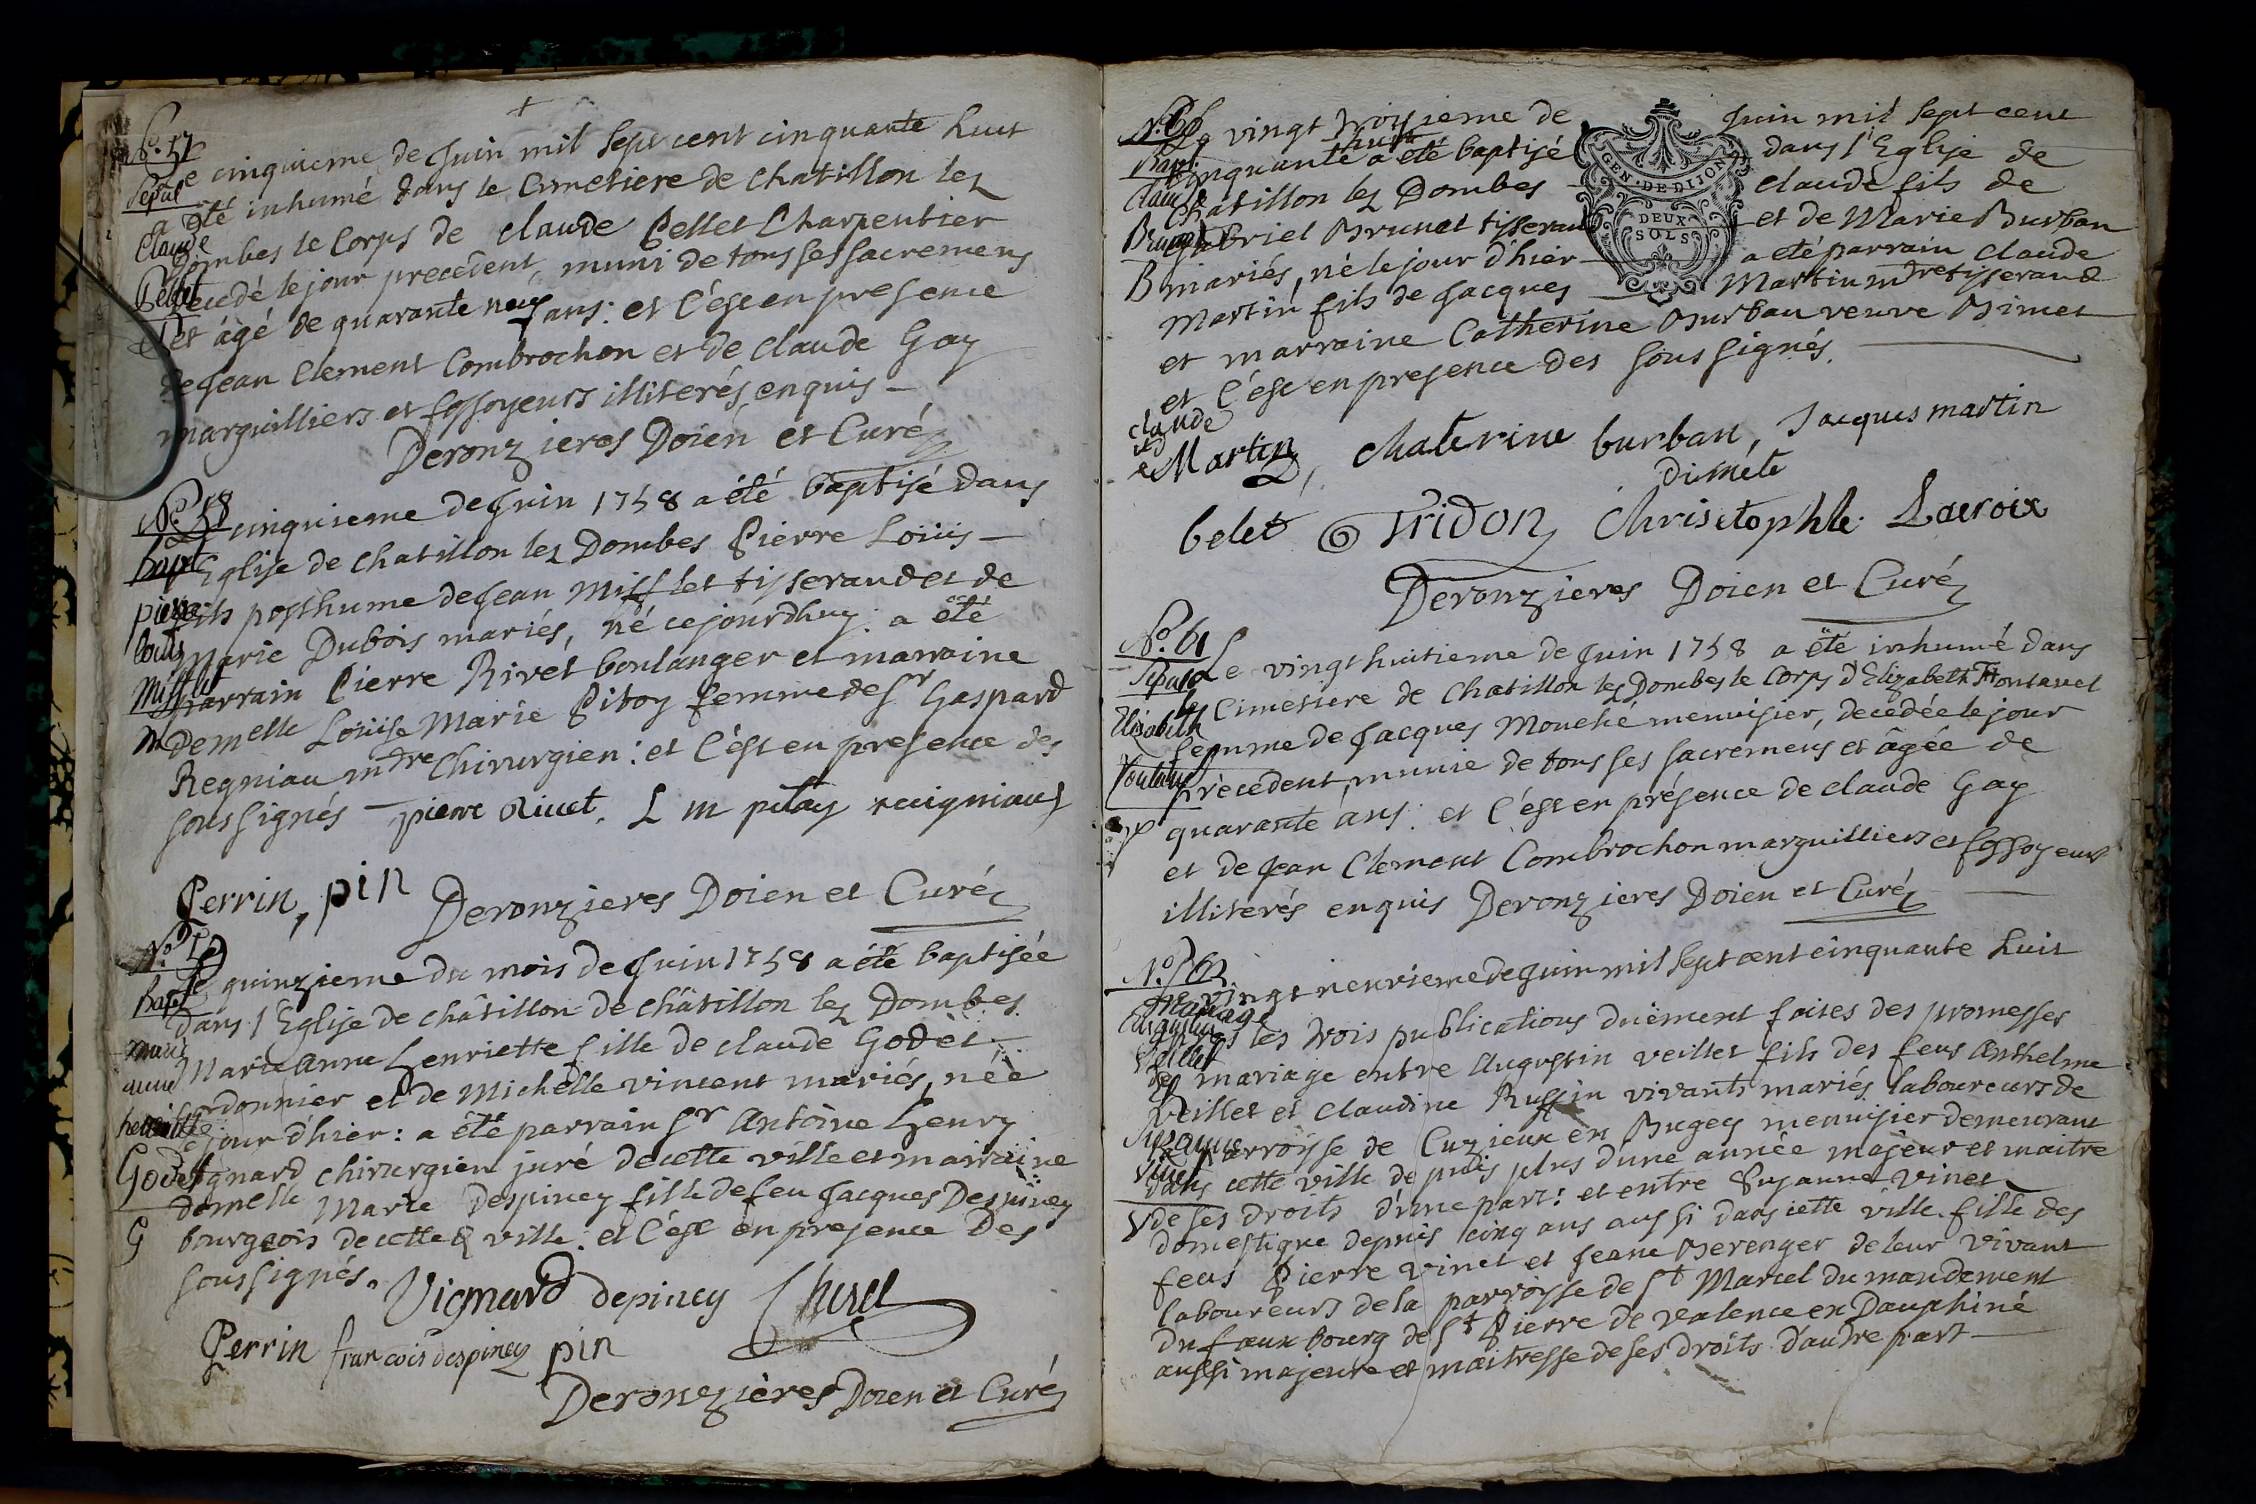 No. 57
Le cinquieme de Juin mil sept cent cinquante huit
Sepul
a été inhumé dans le Cimetiere de chatillon lez
Claude
Dombes le Corps de claude Pellet Charpentier
Pellet
decedé le jour precedent, muni de tous ses sacremens
P
et âgé de quarante neuf ans: et c'ést en presence
de Jean Clement Combrochon et de claude Gay
marguilliers et fossoyeurs illiterés enquis
Deronzieres Doien et Curé
No. 58
Le cinquieme de Juin 1758 a été baptisé dans
Bapt
l'Eglise de chatillon lez Dombes Pierre Loüis
pierre
fils posthume de Jean Mifflet tisserand et de
louis
Marie Dubois mariés, né ce jourdhuy: a été
Mifflet
parrain Pierre Rivet boulanger et marraine
M
Demelle Loüise Marie Pitoy femme de Sr Gaspard
Regniau mtre Chirurgien: et c'ést en presence des
soussignés pierre Rivet. L m pitoy reigniaud
Perrin, pin Deronzieres Doien et Curé
No. 59
Le quinzieme du mois de Juin 1758 a été baptisée
Bapt
dans l'Eglise de châtillon de châtillon lez Dombes
marie
Marie anne henriette fille de claude Godet
anne
cordonnier et de Michelle vincent mariés, née
henriette
le jour d'hier: a été parrain Sr Antoine henry
Godet
Vignard chirurgien juré de cette ville et marraine
demelle Marie Despiney fille de feu Jacques Despiney
G
bourgeois de cette ville: et c'ést en presence des
soussignés.
Vignard depiney Churel
Perrin francois despiney pin
Deronzières Doien et Curé
No. 60
Le vingt troisieme de Juin mil sept cent
Bapt
cinquante huit a été baptisé dans l'Eglise de
Claude
Chatillon lez Dombes claude fils de
Brunet
Gabriel Brunet tisserand et de Marie Burban
B
mariés, né le jour d'hier a été parrain claude
Martin fils de Jacques Martin mtre tisserand
et marraine Catherine Burban veuve Dimet
et c'ést en presence des soussignés.
claude
Martin, chaterine burban, Jacques martin
diméte
belet Tridon Christophle Lacroix
Deronzieres Doien et Curé
No. 61
Le vingt huitieme de Juin 1758 a été inhumé dans
Sepul
le Cimetiere de Chatillon lez Dombes le Corps d'Elizabeth Fontanel
Elisabeth
femme de Jacques Mouché menuisier, decédée le jour
Fontanel
précedent, munie de tous ses sacremens et âgée de
quarante ans: et c'ést en présence de claude Gay
et de Jean Clement Combrochon marguilliers et fossoyeurs
illiterés enquis Deronzieres Doien et Curé
No. 62
Le vingt neuvieme de Juin mil sept cent cinquante huit
Mariage
Augustin
apres les trois publications duëment faites des promesses
Veillet
de mariage entre Augustin veillet fils des feus Anthelme
Veillet et Claudine Ruffin vivants mariés laboureurs de
Suzanne
la parroisse de Cuzieux en Bugey menuisier demeurant
Vinet
dans cette ville depuis plus d'une année majeur et maitre
V
de ses droits d'une part: et entre Suzanne Vinet
domestique depuis cinq ans aussi dans cette ville fille des
feus Pierre vinet et Jeane Berenger de leur vivant
laboureurs de la parroisse de St Marcel du mandement
du faux bourg de St Pierre de valence en Dauphiné
aussi majeure et maitresse de ses droits d'autre part
GEN. DE DIJON
DEUX
SOLS